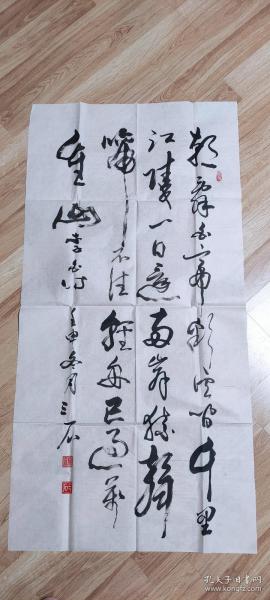 朝辞白帝彩云间千里
江陵一日还两岸猿声
啼不住轻舟已过万
重山李白诗壬申冬月三石
孔夫子旧书网